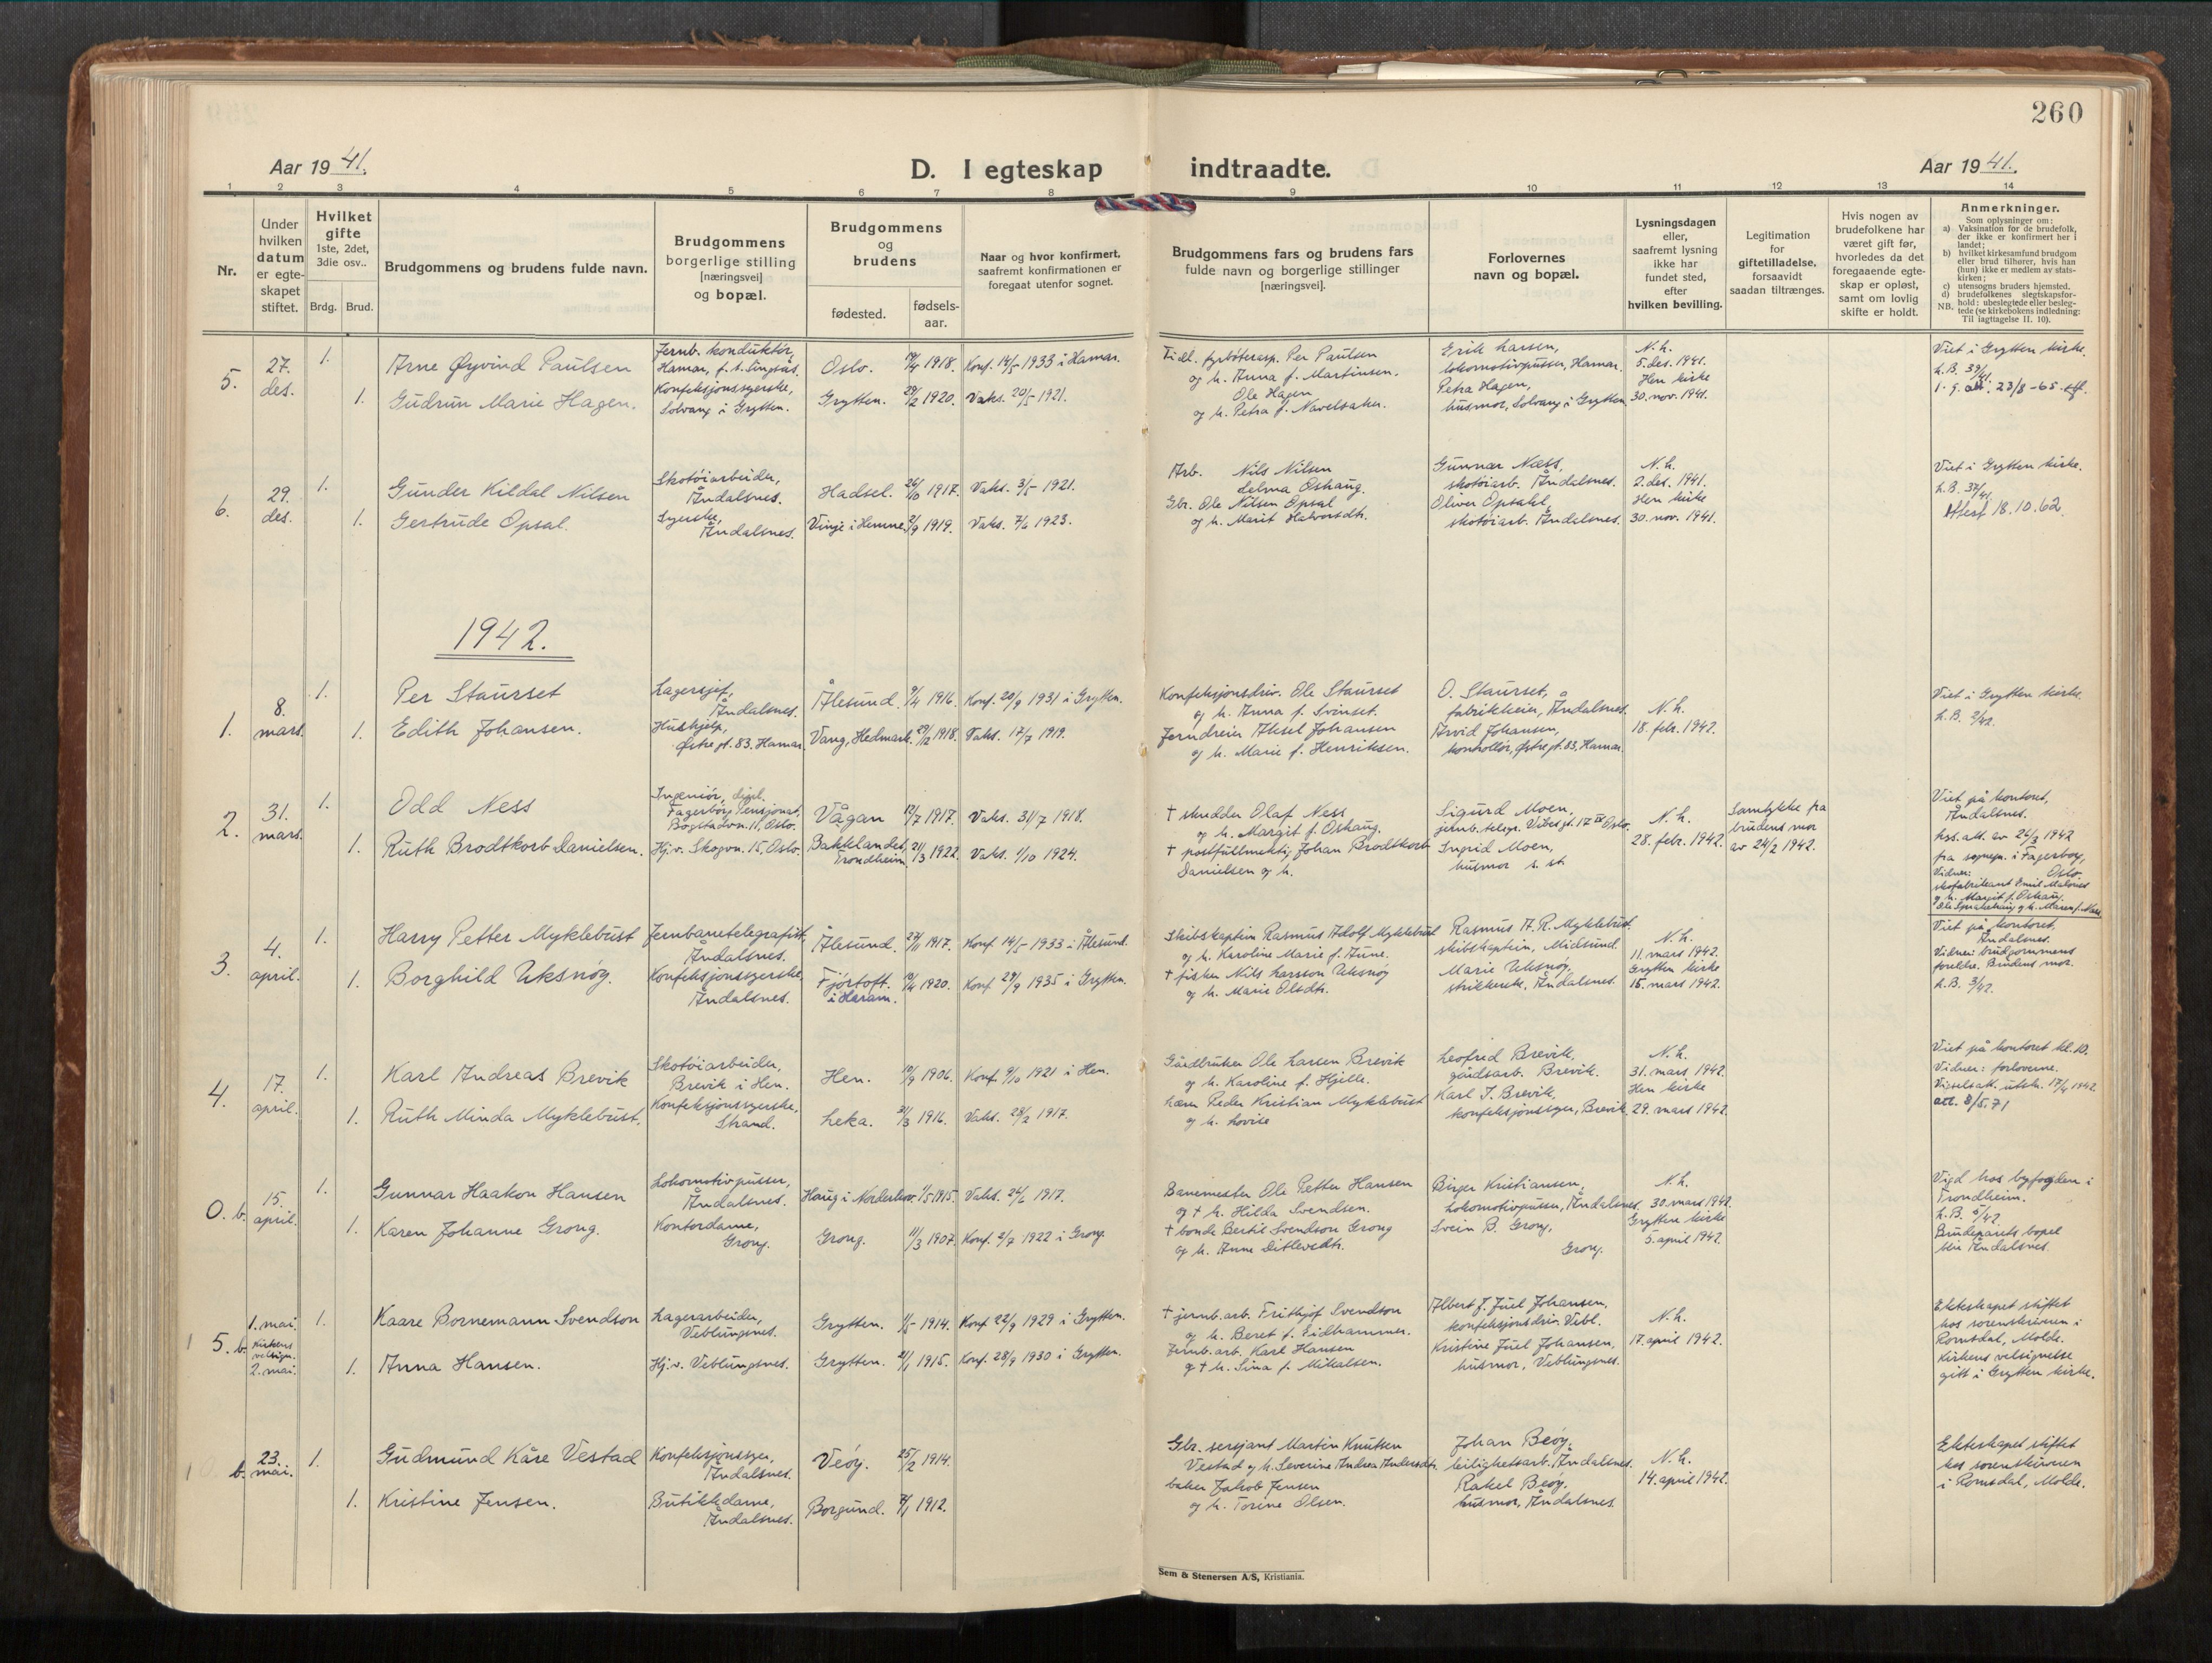 260
Aar 1941.
D. I egteskap indtraadte.
Aar 1941.
1 2 3 4 5 6 7 8 9 10 11 12 13 14
Nr.
Under hvilken datum er egte-skapet stiftet.
Hvilket gifte
1ste, 2det, 3die osv..
Brdg. Brud.
Brudgommens og brudens fulde navn.
Brudgommens borgerlige stilling [næringsvei] og bopæl.
Brudgommens og brudens
fødested.
fødsels-aar.
Naar og hvor konfirmert, saafremt konfirmationen er foregaat utenfor sognet.
Brudgommens fars og brudens fars fulde navn og borgerlige stillinger [næringsvei].
Forlovernes navn og bopæl.
Lysningsdagen eller, saafremt lysning ikke har fundet sted, efter hvilken bevilling.
Legitimation for giftetilladelse, forsaavidt saadan tiltrænges.
Hvis nogen av brudefolkene har været gift før, hvorledes da det foregaaende egte-skap er opløst, samt om lovlig skifte er holdt.
Anmerkninger.
Som oplysninger om:
a) Vaksination for de brudefolk, der ikke er konfirmert her i landet;
b) hvilket kirkesamfund brudgom eller brud tilhører, hvis han (hun) ikke er medlem av stats-kirken;
c) utensogns bruders hjemsted.
d) brudefolkenes slegtskapsfor-hold: ubeslegtede eller beslegtede (se kirkebokens indledning: Til iagttagelse II. 10).
NB.
5.
27. des.
1.
Arne Øyvind Paulsen
Jernb. konduktør,
Hamar,
Oslo.
1918.
Konf. 14/5 1933 i Hamar.
Per Paulsen
og h. Anna f. Martinsen.
Erik Larsen,
lokomotivpusser, Hamar.
N.h.
5. des. 1941.
Viet i Grytten kirke.
L.B. 39/41.
1.
Gudrun Marie Hagen.
Konfeksjonssyerske,
Solvang i Grytten.
Grytten.
29/2 1920.
Vaks. 20/5 1921.
Ole Hagen
og h. Petra f.
Petra Hagen,
husmor, Solvang i Grytten
Hen kirke
30. nov. 1941.
6.
29. des.
1.
Gunder Kildal Nilsen
Skotøiarbeider,
Åndalsnes.
Hadsel.
26/10 1917.
Vaks. 3/5 1921.
Arb. Nils Nilsen
Selma Oshaug.
Gunnar Næss,
skotøiarb. Åndalsnes.
N.h.
2. des. 1941.
Viet i Grytten kirke.
L.B. 37/41.
Attest 18.10.62.
1.
Gertrude Opsal.
Syerske,
Åndalsnes.
Vinje i Hemne.
1919.
Vaks. 7/6 1923.
Gbr. Ole Nilsen Opsal
og h. Marit Halvorsdtr.
Oliver Opsahl,
skotøiarb. Åndalsnes.
Hen kirke
30. nov. 1941.
1942.
1.
8. mars.
1.
Per Staurset
Lagersjef,
Åndalsnes.
Ålesund.
9/4 1916.
Konf. 20/9 1931 i Grytten.
Konfeksjonsdriv. Ole Staurset
og h. Anna f. Svinset.
O. Staurset,
fabrikkeier, Åndalsnes.
N.h.
18. febr. 1942.
Viet i Grytten kirke.
L.B. 2/42.
1.
Edith Johansen.
Hushjelp,
Østre gt. 83, Hamar.
Vang, Hedmark.
29/12 1918.
Vaks. 17/7 1919.
Jerndreier Aksel Johansen
og h. Marie f. Henriksen.
Arvid Johansen,
kontrollør, Østre gt. 83, Hamar.
2.
31. mars.
1.
Odd Ness
Ingeniør, dipl.
Fagerborg Pensjonat,
Bogstadvn. 11, Oslo.
Vågan
12/7 1917.
Vaks. 31/7 1918.
† skredder Olaf Ness
og h. Margit f. Oshaug.
Sigurd Moen,
jernb.telegr. Vibes gt. 17 IV Oslo.
N.h.
28. febr. 1942.
Samtykke fra
brudens mor
av 24/2 1942.
Viet på kontoret,
Åndalsnes.
av 26/3 1942
fra sognepr. i Fagerborg,
Oslo.
Vidner:
skofabrikant Emil
og h. Margit f. Oshaug.
1.
Ruth Brodtkorb Danielsen.
Hj.v. Skogvn. 15, Oslo.
Baklandet,
Trondheim.
21/3 1922.
Vaks. 1/10 1924.
† postfullmektig Johan Brodtkorb
Danielsen og h.
Ingrid Moen,
husmor s. st.
3.
4. april.
1.
Harry Petter Myklebust
Jernbanetelegrafist,
Åndalsnes.
Ålesund.
27/11 1917.
Konf. 14/5 1933 i Ålesund.
Skibskaptein Rasmus Adolf Myklebust
og h. Karoline Marie f. Aune.
Rasmus A.R. Myklebust
skibskaptein, Midsund.
N.h.
11. mars 1942.
Viet på kontoret,
Åndalsnes.
Vidner: brudgommens
foreldre. Brudens mor.
L.B. 3/42.
1.
Borghild Uksnøy.
Konfeksjonssyerske,
Åndalsnes.
Fjørtoft
i Haram.
19/4 1920.
Konf. 29/9 1935 i Grytten.
† fisker Nils Larsson Uksnøy
og h. Marie Olsdtr.
Marie Uksnøy
strikkerske, Åndalsnes.
Grytten kirke
15. mars 1942.
4.
17. april.
1.
Karl Andreas Brevik
Skotøiarbeider,
Brevik i Hen.
Hen.
19/9 1906.
Konf. 9/10 1921 i Hen.
Gårdbruker Ole Larsen Brevik
og h. Karoline f. Hjelle.
Leofred Brevik,
gårdsarb. Brevik.
N.h.
31. mars 1942.
Viet på kontoret kl. 10.
Vidner: forloverne.
Vigselsatt. utstk. 17/4 1942
att. 8/5.71
1.
Ruth Minda Myklebust.
Konfeksjonssyerske,
Strand.
Leka.
21/3 1916.
Vaks. 28/2 1917.
Lærer Peder Kristian Myklebust
og h. Lovise
Karl J. Brevik,
konfeksjonssyer, Brevik.
Hen kirke
29. mars 1942.
0. b.
15. april.
1.
Gunnar Haakon Hansen
Lokomotivpusser,
Åndalsnes.
Haug i Norderhov.
1/5 1915.
Vaks. 24/6 1917.
Banemester Ole Petter Hansen
og † h. Hilda Svendsen.
Birger Kristiansen,
Lokomotivpusser, Åndalsnes.
N.h.
30. mars 1942.
Vigd hos byfogden i
Trondheim.
L.B. 5/42
Brudeparets bopel
blir Åndalsnes.
1.
Karen Johanne Grong.
Kontordame,
Grong.
Grong.
11/3 1907.
Konf. 2/7 1922 i Grong.
† bonde Bertil Svendson Grong
og h. Anne Ditlevsdtr.
Svein B. Grong,
Grong.
Grytten kirke
5. april 1942.
5. b.
1. mai.
Kirkens velsign.
2. mai.
1.
Kaare Bornemann Svendson
Lagerarbeider,
Veblungsnes.
Grytten.
1/5 1914.
Konf. 22/9 1929 i Grytten.
† jernb.arb. Frithjof Svendson
og h. Beret f. Eidhammer.
Albert J. Juel Johansen,
konfeksjonsdriv. Vebl.
N.h.
17. april 1942.
Ekteskapet stiftet
hos sorenskriveren i
Romsdal, Molde.
Kirkens velsignelse
gitt i Grytten kirke.
1.
Anna Hansen.
Hj.v. Veblungsnes.
Grytten.
21/1 1915.
Konf. 28/9 1930 i Grytten.
Jernb.arb. Karl Hansen
og † h. Sina f. Mikalsen.
Kristine Juel Johansen,
husmor, Veblungsnes.
b.
23. mai.
1.
Gudmund Kåre Vestad
Konfeksjonssyer,
Åndalsnes.
Veøy.
25/2 1914.
Gbr. sersjant Martin Knutsen
Vestad og h. Severine Andrea Andersdtr.
Johan Beøy,
leilighetsarb. Åndalsnes.
N.h.
14. april 1942.
Ekteskapet stiftet
hos sorenskriveren
i Romsdal, Molde.
1.
Kristine Jensen.
Butikkdame,
Åndalsnes.
Borgund.
1912.
baker Jakob Jensen
og h. Torine Olsen.
Rakel Beøy.
husmor, Åndalsnes.
Sem & Stenersen A/S, Kristiania.